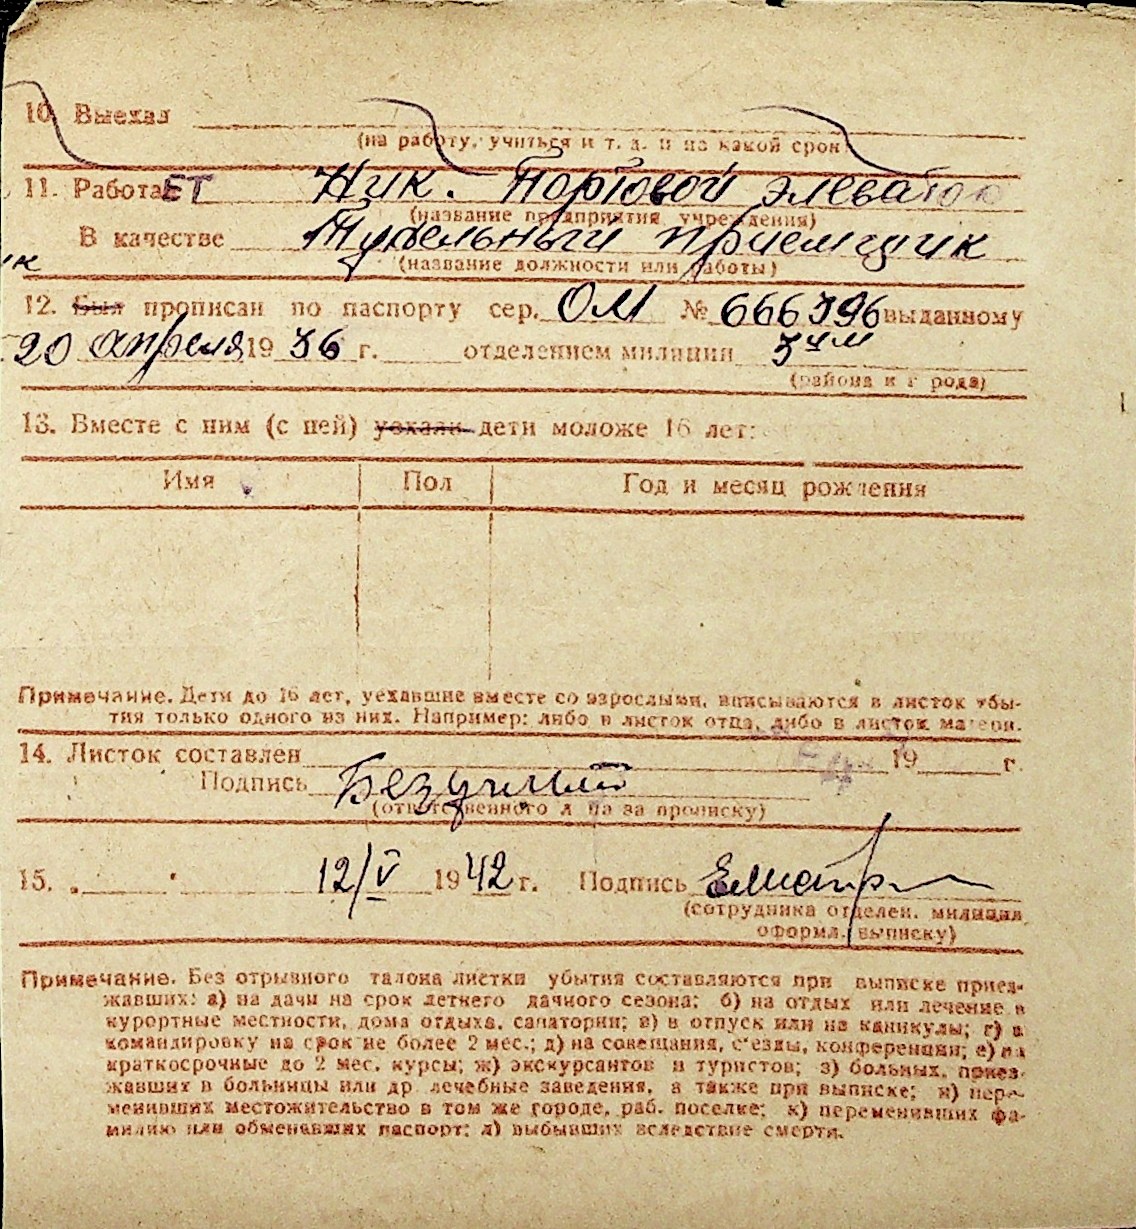 10. Выехал
(на работу, учиться и т. д. и на какой срок)
11. РаботаЕТ Ник. Портовой элеватор
(название предприятия учреждения)
В качестве приемщик
ик
(название должности или работы)
12. Был прописан по паспорту сер. ОМ № 666396 выданному
20 апреля 1936 г. отделением милиции 3им
(района и г рода)
13. Вместе с ним (с ней) уехали дети моложе 16 лет:
Имя Пол Год и месяц рождения
Примечание. Дети до 16 лет, уехавшие вместе со взрослыми, вписываются в листок убы-
тия только одного из них. Например: либо в листок отца, либо в листок матери.
14. Листок составлен 19 г.
Подпись
(ответственного л ца за прописку)
15. 12/V 1942 г. Подпись
(сотрудника отделен. милиции
оформл. выписку)
Примечание. Без отрывного талона листки убытия составляются при выписке приез-
жавших: а) на дачи на срок летнего дачного сезона; б) на отдых или лечение в
курортные местности, дома отдыха, санатории; в) в отпуск или на каникулы; г) в
командировку на срок не более 2 мес.; д) на совещания, с'езды, конференции; е) на
краткосрочные до 2 мес. курсы; ж) экскурсантов и туристов; з) больных, приез-
жавших в больницы или др. лечебные заведения, а также при выписке; и) пере-
менивших местожительство в том же городе, раб. поселке; к) переменивших фа-
милию или обменявших паспорт; л) выбывших вследствие смерти.